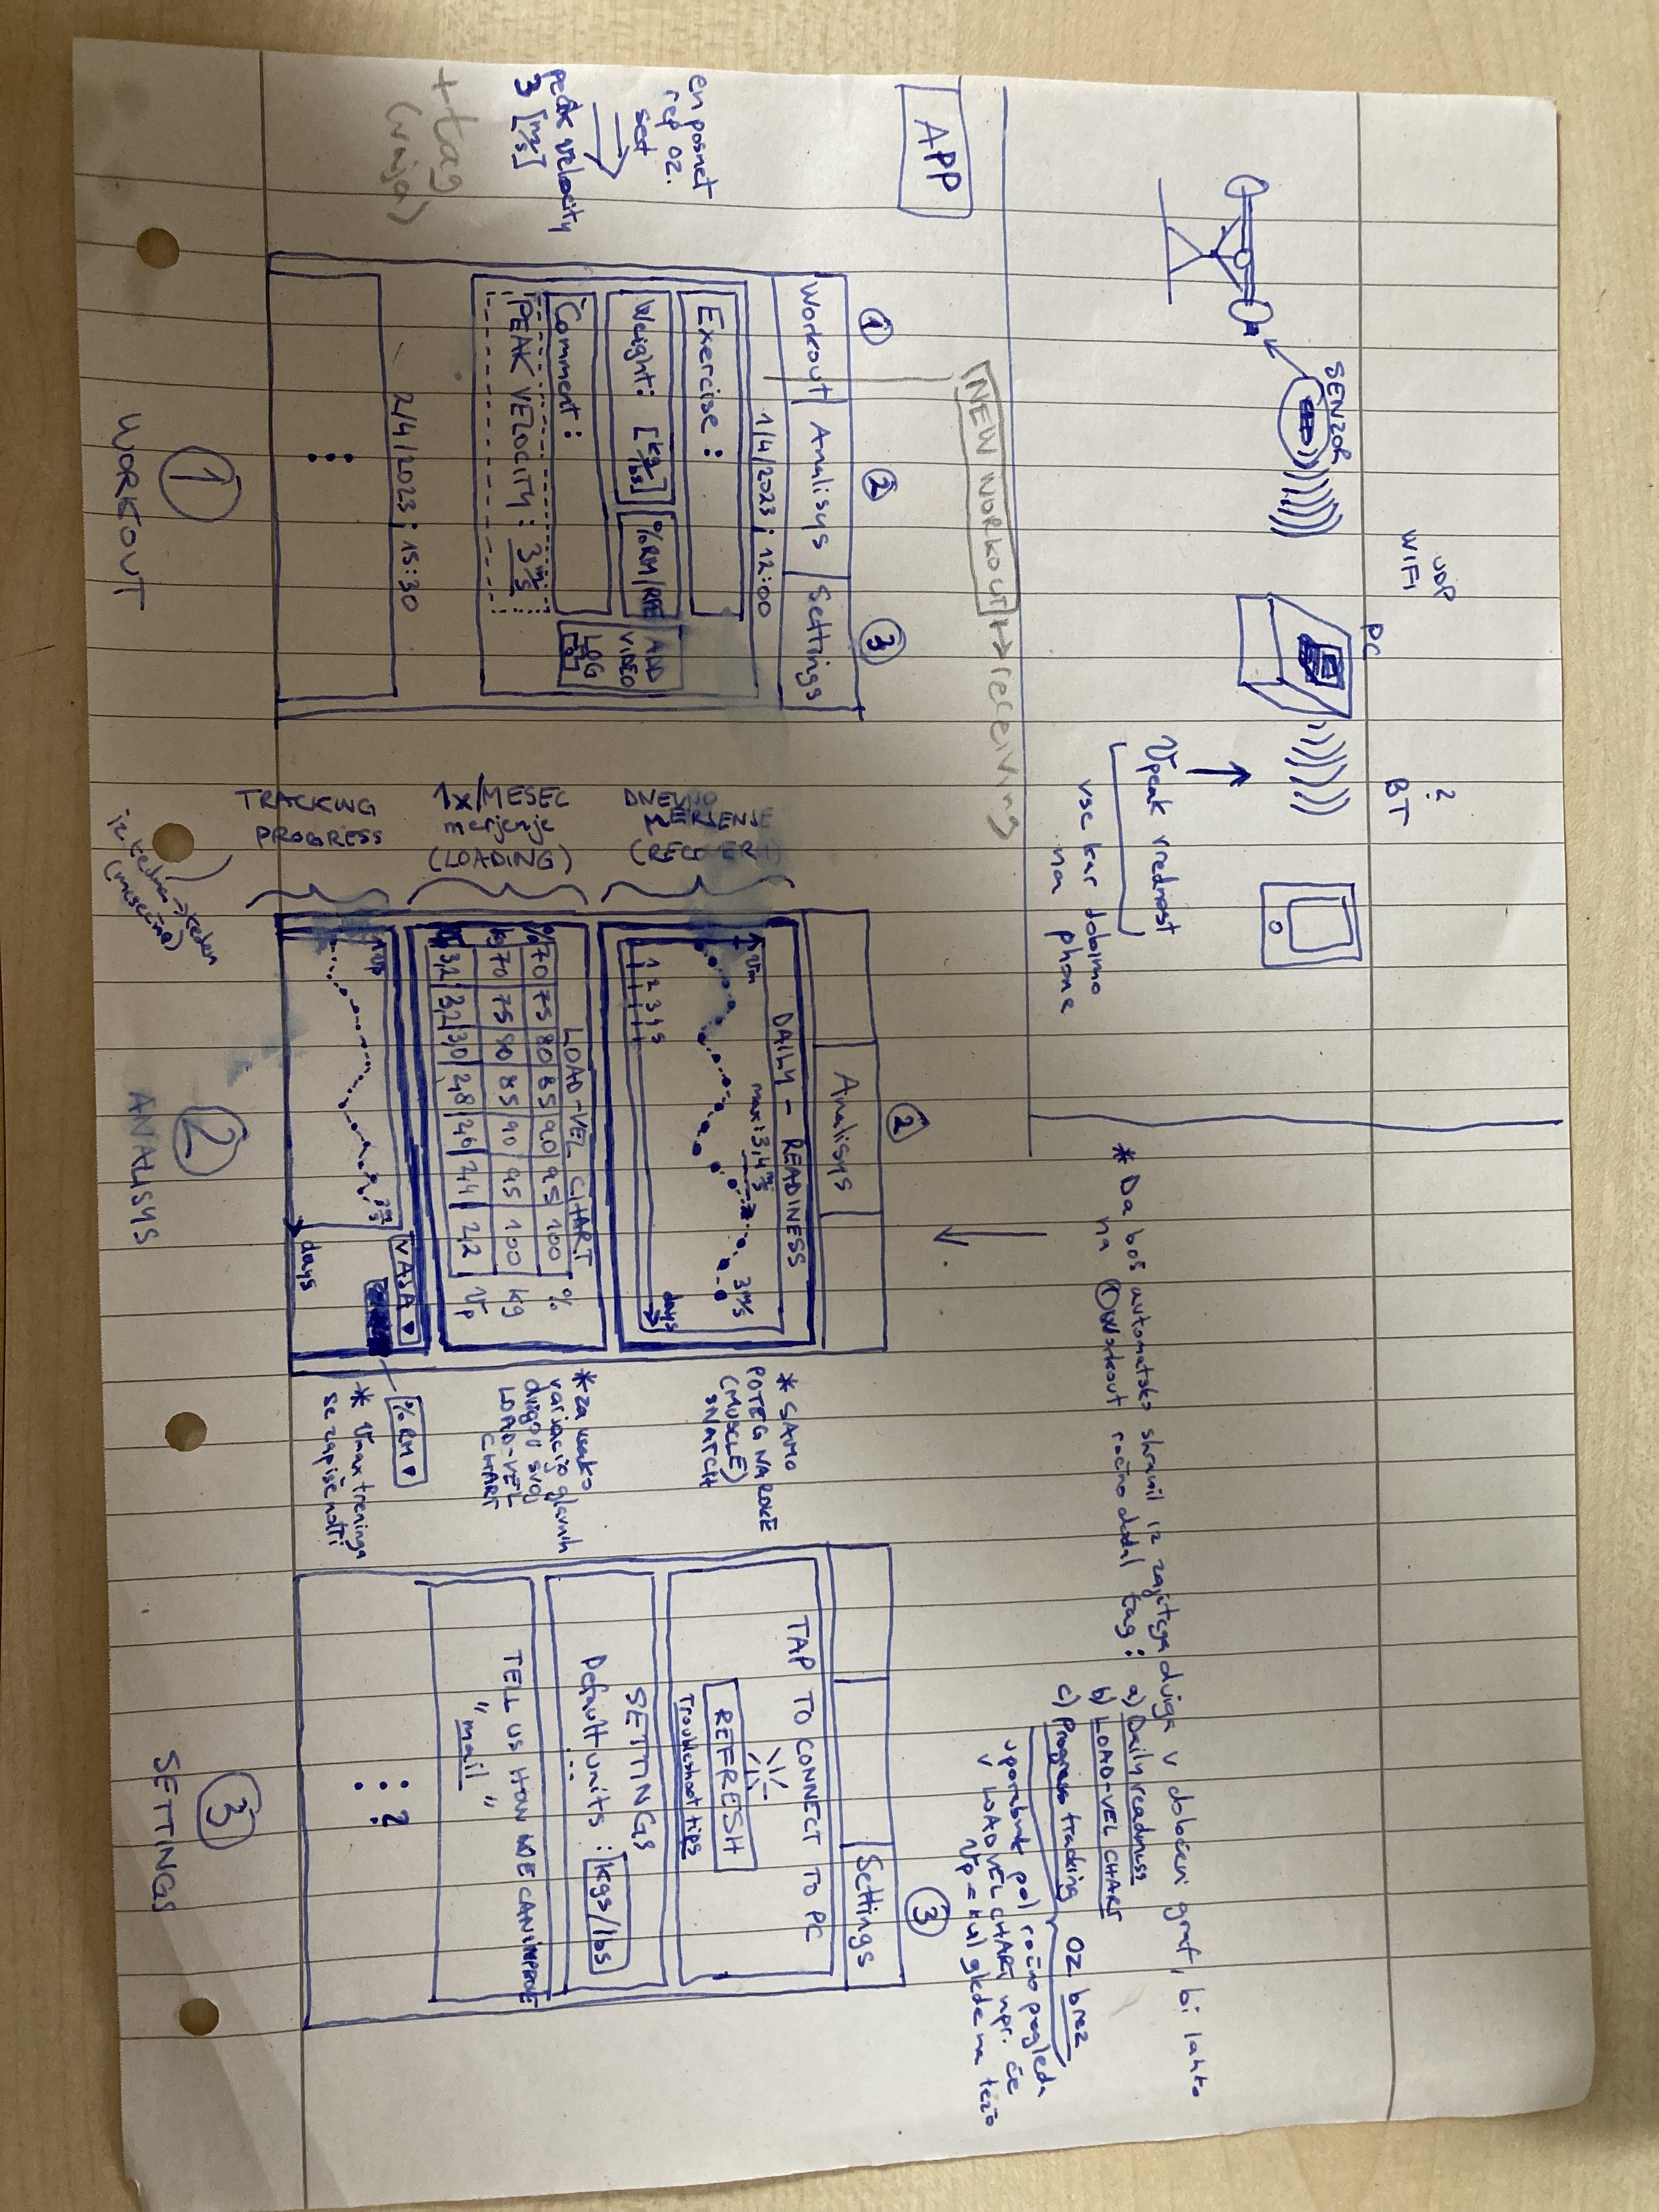 UDP
WIFI
?
BT
PC
SENZOR
Vpeak vrednost
vse kar dobimo
na phone
* Da boš automatsko shranil iz zajetega dviga v določeni graf, bi lahko
na ① Workout ročno dodal tag: a) Daily readness
b) LOAD-VEL CHART
c) Progress tracking oz. brez
uporabnik pol ročno pogleda
v LOAD VEL CHART npr. če
Vp = kul glede na težo
NEW WORKOUT → receiving
APP
① ② ③
Workout Analisys Settings
1/4/2023; 12:00
Exercise:
Weight: [kg/lbs] %RM/RPE
ADD
VIDEO
LOG
Comment:
PEAK VELOCITY: 3 m/s
2/4/2023; 15:30
en posnet
rep oz.
set
peak velocity
3 [m/s]
+ tag
(vaja)
①
WORKOUT
②
Analisys
DNEVNO
MERJENJE
(RECOVERY)
DAILY - READINESS
Vm
max: 3,4 m/s
3 m/s
1 2 3 4 5
days
* SAMO
POTEG NA ROKE
(MUSCLE)
SNATCH
1x/MESEC
merjenje
(LOADING)
LOAD-VEL CHART
% 70 75 80 85 90 95 100 %
kg 70 75 80 85 90 95 100 kg
3,2 3,2 3,0 2,8 2,6 2,4 2,2 Vp
* za vsako
variacijo glavnih
dvigov svoj
LOAD-VEL
CHART
TRACKING
PROGRESS
Vp
3 m/s
VAJA ▼
%RM ▼
days
* Vmax treninga
se zapiše notri
iz tedna → teden
(mesečno)
②
ANALISYS
③
Settings
TAP TO CONNECT TO PC
REFRESH
Troubleshoot tips
SETTINGS
Default units: kgs/lbs
...
TELL US HOW WE CAN IMPROVE
"mail"
?
③
SETTINGS